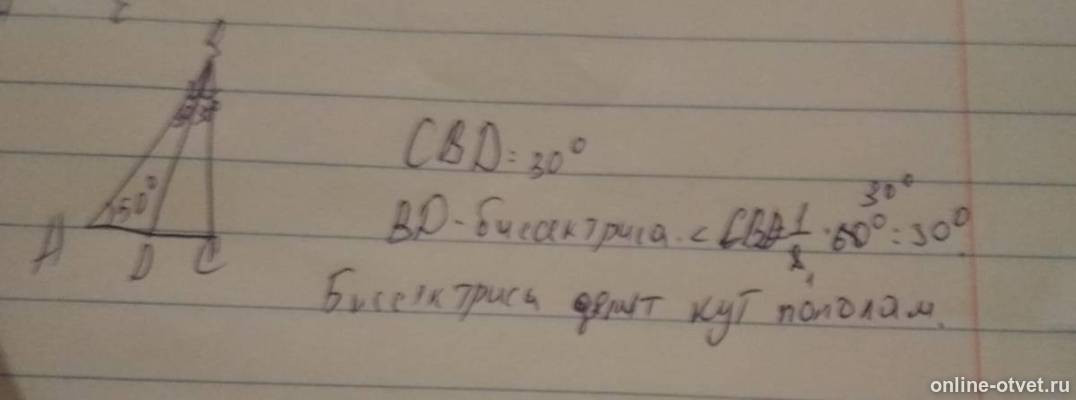 B
30° 30°
50°
A D C
CBD = 30°
30°
BD - бисектриса < CBD 1/2 · 60° = 30°
Бисектриса делит кут пополам.
online-otvet.ru